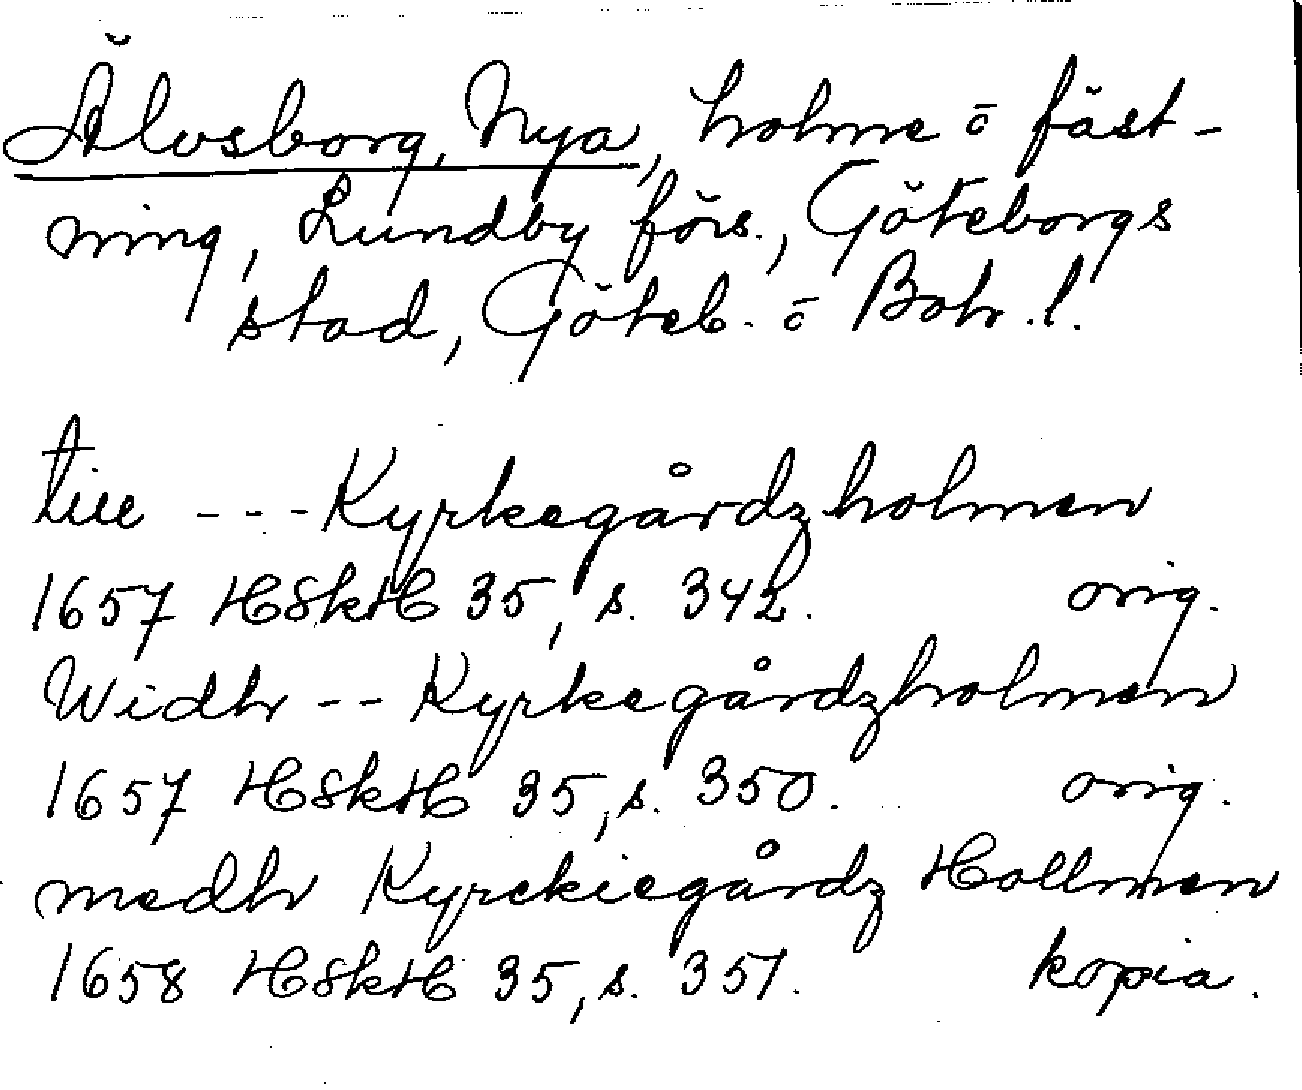 Älvsborg, Nya, holme ō fäst-
ning, Lundby förs., Göteborgs
stad, Göteb. ō Boh. l.
till --- Kyrkegårdzholmen
1657 HSkH 35, s. 342. orig.
Widh -- Kyrkegårdzholmen
1657 HSkH 35, s. 350. orig.
medh Kyrckiegårdz Hollmen
1658 HSkH 35, s. 351. kopia.